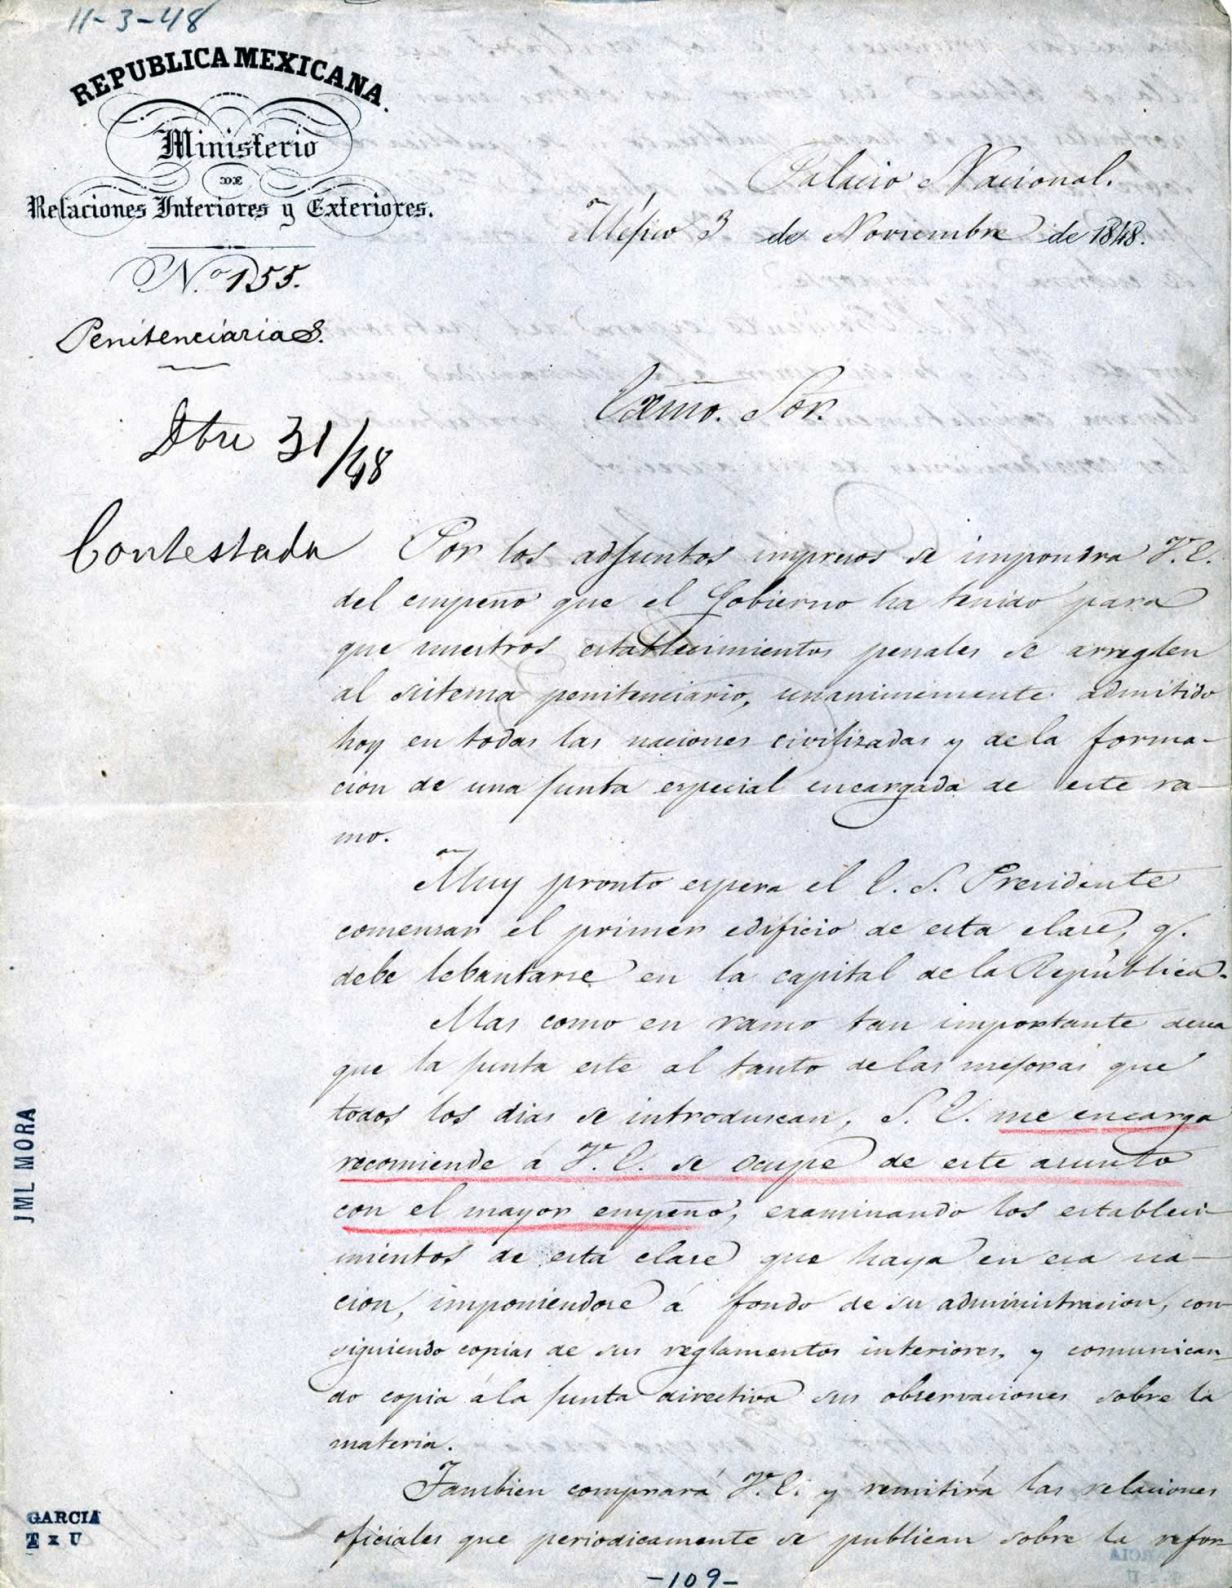 11-3-48
REPUBLICA MEXICANA.
Ministerio
DE
Relaciones Interiores y Exteriores.
N.º 155.
Penitenciarias.
Dbre 31/48
Contestada
Palacio Nacional.
Méjico 3 de Noviembre de 1848.
Exmo. Sor.
Por los adjuntos impresos se impondra V. E.
del empeño que el Gobierno ha tenido para
que nuestros establecimientos penales se arreglen
al sistema penitenciario, unanimemente admitido
hoy en todas las naciones civilizadas y de la forma-
cion de una junta especial encargada de este ra-
mo.
Muy pronto espera el E. S. Presidente
comensar el primer edificio de esta clase, q.
debe lebantarse en la capital de la República.
Mas como en ramo tan importante desea
que la junta este al tanto de las mejoras que
todos los dias se introduscan, S. E. me encarga
recomiende á V. E. se ocupe de este asunto
con el mayor empeño, examinando los estableci-
mientos de esta clase que haya en esa na-
cion, imponiendose á fondo de su administracion, con-
siguiendo copias de sus reglamentos interiores, y comunican-
do copia á la junta directiva sus observaciones sobre la
materia.
Tambien comprará V. E. y remitirá las relaciones
oficiales que periodicamente se publican sobre la refor-
JML MORA
GARCIA
T x U
-109-